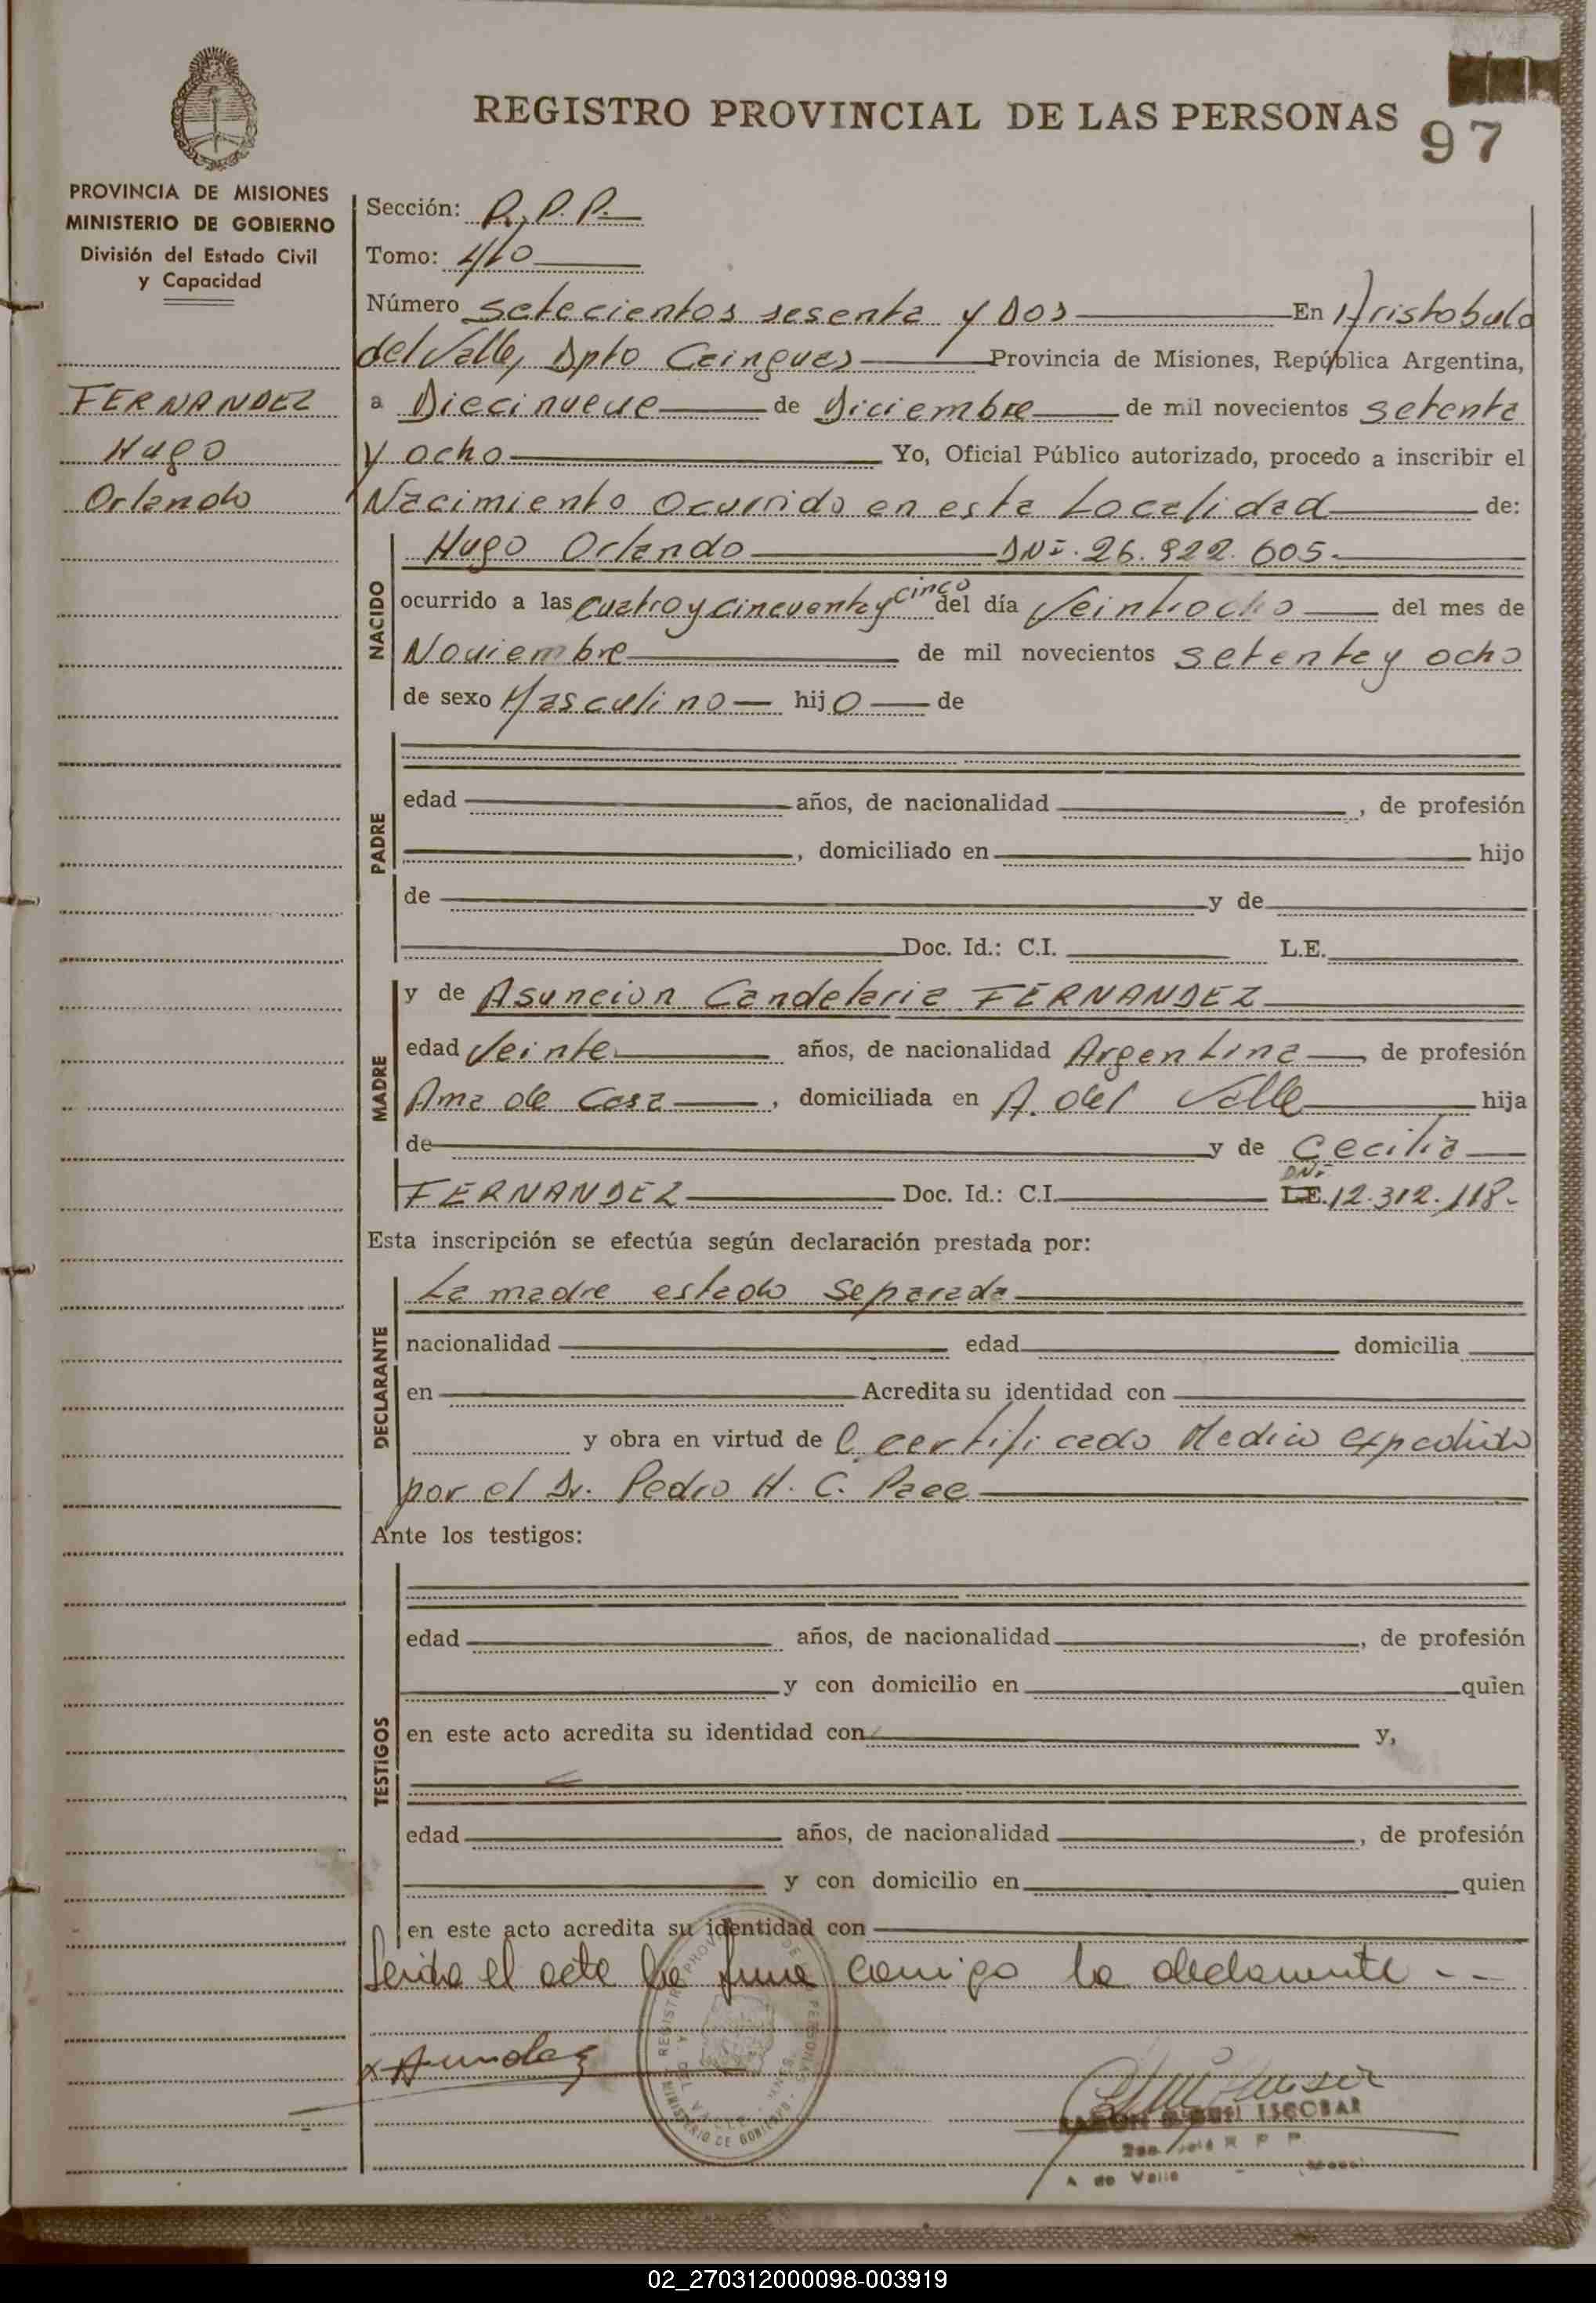 REGISTRO PROVINCIAL DE LAS PERSONAS
97
PROVINCIA DE MISIONES
MINISTERIO DE GOBIERNO
División del Estado Civil
y Capacidad
FERNANDEZ
Hugo
Orlando
Sección: R.P.P.
Tomo: 4/10
Número setecientos sesenta y Dos En Aristobulo
del Valle, Dpto Cainguas Provincia de Misiones, República Argentina,
a Diecinueve de Diciembre de mil novecientos setenta
y ocho Yo, Oficial Público autorizado, procedo a inscribir el
Nacimiento Ocurrido en esta Localidad de:
NACIDO
Hugo Orlando DNI. 26.922.605.
ocurrido a las cuatro y cincuenta y cinco del día Veintiocho del mes de
Noviembre de mil novecientos setenta y ocho
de sexo Masculino hijo de
PADRE
edad años, de nacionalidad , de profesión
, domiciliado en hijo
de y de
Doc. Id.: C.I. L.E.
MADRE
y de Asuncion Candelaria FERNANDEZ
edad Veinte años, de nacionalidad Argentina de profesión
Ama de Casa , domiciliada en A. del Valle hija
de y de Cecilia
FERNANDEZ Doc. Id.: C.I. L.E. DNI 12.312.118.-
Esta inscripción se efectúa según declaración prestada por:
DECLARANTE
La madre estado Separada
nacionalidad edad domicilia
en Acredita su identidad con
y obra en virtud de Certificado Medico expedido
por el Dr. Pedro H. C.
Ante los testigos:
TESTIGOS
edad años, de nacionalidad , de profesión
y con domicilio en quien
en este acto acredita su identidad con y,
edad años, de nacionalidad , de profesión
y con domicilio en quien
en este acto acredita su identidad con
Leida el acta la firma conmigo la declarante --
ESCOBAR
R P P
A de Valle
02_270312000098-003919